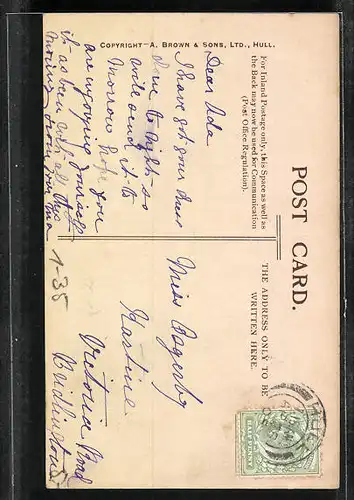 COPYRIGHT—A. BROWN & SONS, LTD., HULL.
POST CARD.
For Inland Postage only, this Space as well as
the Back may now be used for Communication
(Post Office Regulation).
THE ADDRESS ONLY TO BE
WRITTEN HERE.
Dear Ada
I have got your
to night so
will send it to
Morrow hope you
are enjoying yourself
it as been
from
Miss
Victoria Road
Bridlington
1-35
HULL
HALFPENNY